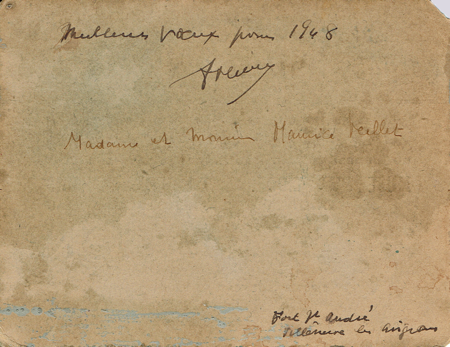 Meilleurs vœux pour 1948
Madame et Monsieur Maurice
Fort St André
Villeneuve les Avignon